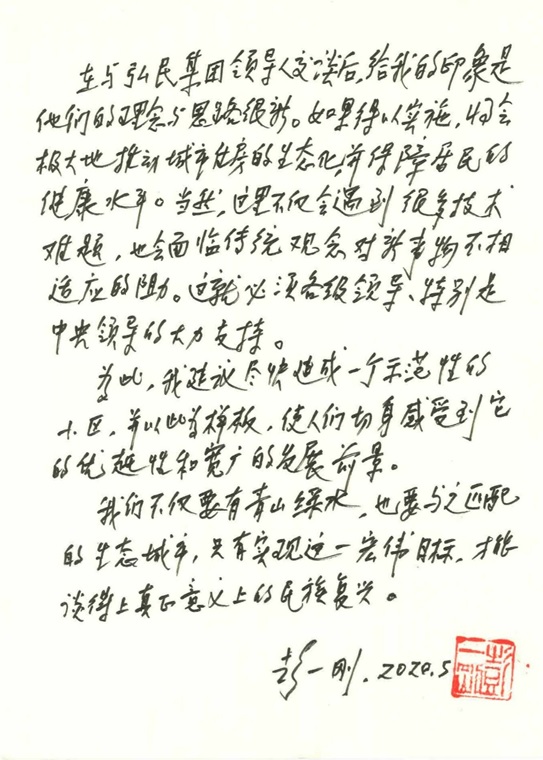 在与弘民集团领导人交谈后,给我的印象是
他们的理念与思路很新。如果得以实施,将会
极大地推动城市住房的生态化,并保障居民的
健康水平。当然,这里不仅会遇到很多技术
难题,也会面临传统观念对新事物不相
适应的阻力。这就必须各级领导、特别是
中央领导的大力支持。
为此,我建议尽快建成一个示范性的
小区,并以此为样板,使人们切身感受到它
的优越性和宽广的发展前景。
我们不仅要有青山绿水,也要与之匹配
的生态城市,只有实现这一宏伟目标,才能
谈得上真正意义上的民族复兴。
彭一刚.2020.5
彭一刚